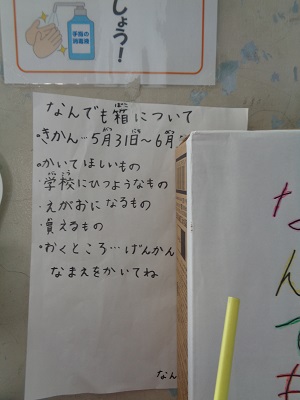 しょう!
手指の
消毒液
なんでも箱について
・きかん…5月31日～6月
・かいてほしいもの
・学校にひつようなもの
・えがおになるもの
・買えるもの
・おくところ…げんかん
なまえをかいてね
なん
なんでも